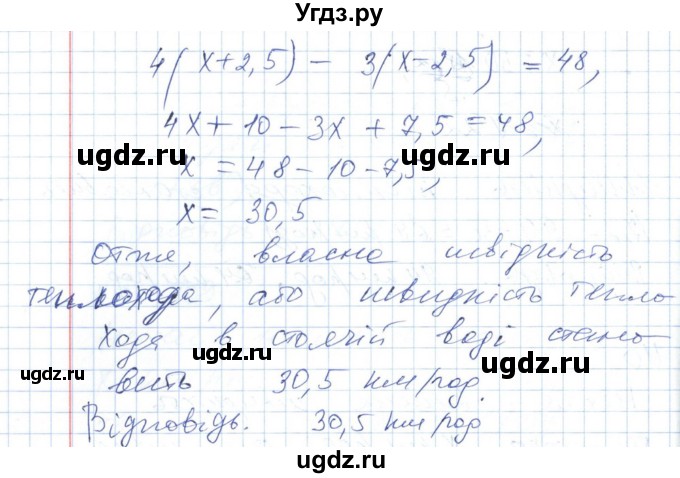 Угдз.ру
4(x+2,5) - 3(x-2,5) = 48,
4x+10-3x+7,5=48,
ugdz.ru ugdz.ru
x = 48-10-7,5,
x= 30,5
Отже, власна швідність
ugdz.ru
теплохода, або швидність тепло
хода в стоячій воді стано
ugdz.ru ugdz.ru
вить 30,5 км/год.
Відповідь. 30,5 км/год
ugdz.ru